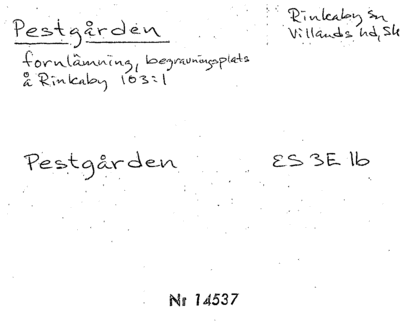 Pestgården
fornlämning, begravningsplats
å Rinkaby 103:1
Rinkaby sn
Villands hd, Sk
Pestgården
ES 3E 1b
Nr 14537